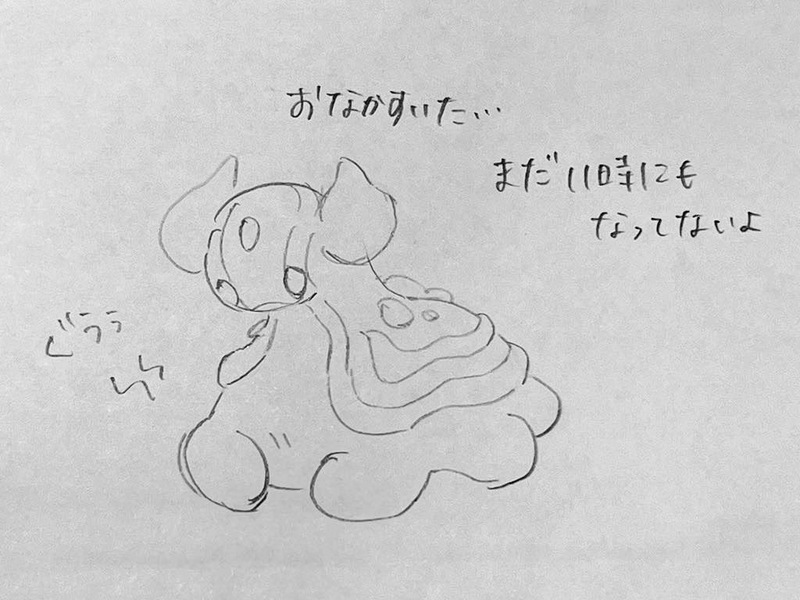 おなかすいた…
まだ11時にも
なってないよ
ぐぅぅ